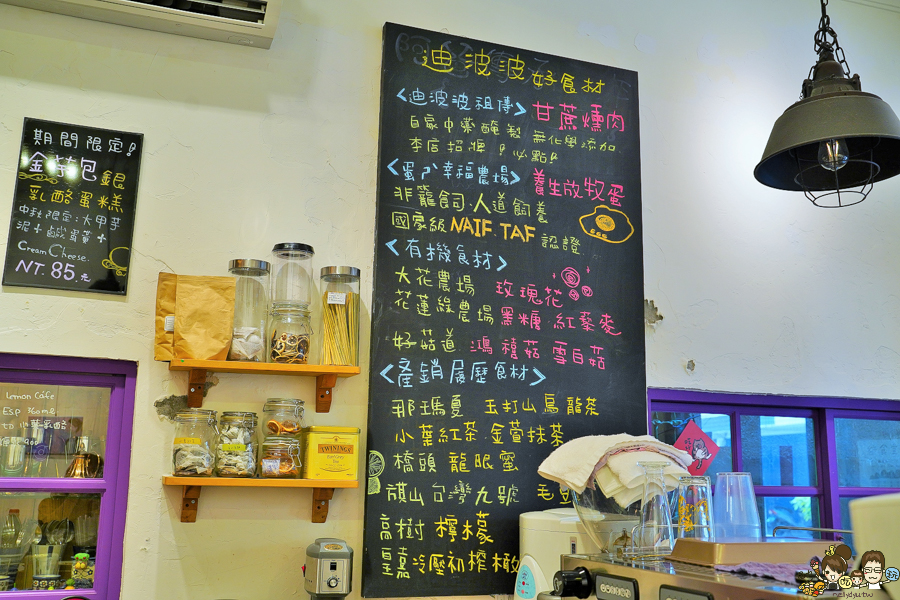 期間限定!
金莎包 銀
乳酪蛋糕
中秋限定:大甲芋
泥+鹹蛋黃+
Cream Cheese.
NT. 85.元
迪波波好食材
<迪波波祖傳> 甘蔗燻肉
自家中藥醃製 無化學添加
本店招牌!必點!
幸福農場> 養生放牧蛋
非籠飼.人道飼養
國家級 NAIF.TAF 認證
<有機食材>
大花農場 玫瑰花
花蓮綠農場 黑糖.紅藜麥
好菇道 鴻禧菇 雪白菇
<產銷履歷食材>
那瑪夏 玉打山烏龍茶
小葉紅茶.金萱抹茶
橋頭 龍眼蜜
旗山 台灣九號 毛豆
高樹 檸檬
皇嘉冷壓初榨橄
TWININGS
Lemon Cafe
ESP 360ml